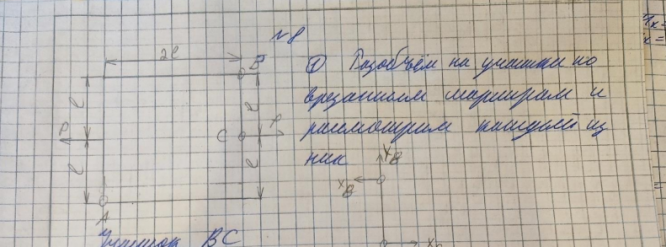 №8
2l
B
① Разобьём на участки по
врезанным шарнирам и
рассмотрим каждый из
них
l
l
P
C
P
l
l
A
X_B
Y_B
Участок BC